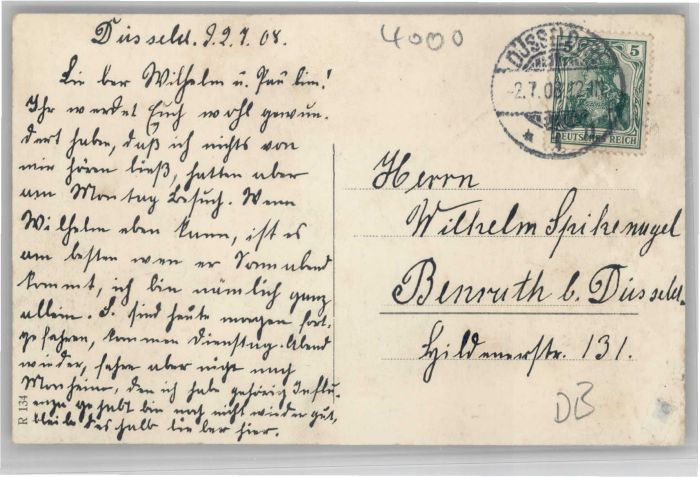 Düsseld. d. 2.7.08.
Lieber Wilhelm u. Paulin!
Ihr werdet Euch wohl gewun-
dert haben, daß ich nichts von
mir hören ließ, hatten aber
am Montag Besuch. Wenn
Wilhelm eben kann, ist es
am besten wen er Sonnabend
kommt, ich bin nämlich ganz
allein. S. sind heute morgen fort-
gefahren, kommen Dienstag-Abend
wieder, fahre aber nicht nach
Monheim, den ich habe gehörig Influ-
enza gehabt bin noch nicht wieder gut,
bleibe deshalb lieber hier.
4000
DÜSSELDORF
-2.7.08.12-1N
5 5
DEUTSCHES REICH
Herrn
Wilhelm Spikernagel
Benrath b. Düsseld.
Hildenerstr. 131.
DB
R 134